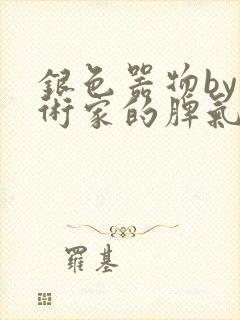 銀色器物by
術家的脾氣
羅基